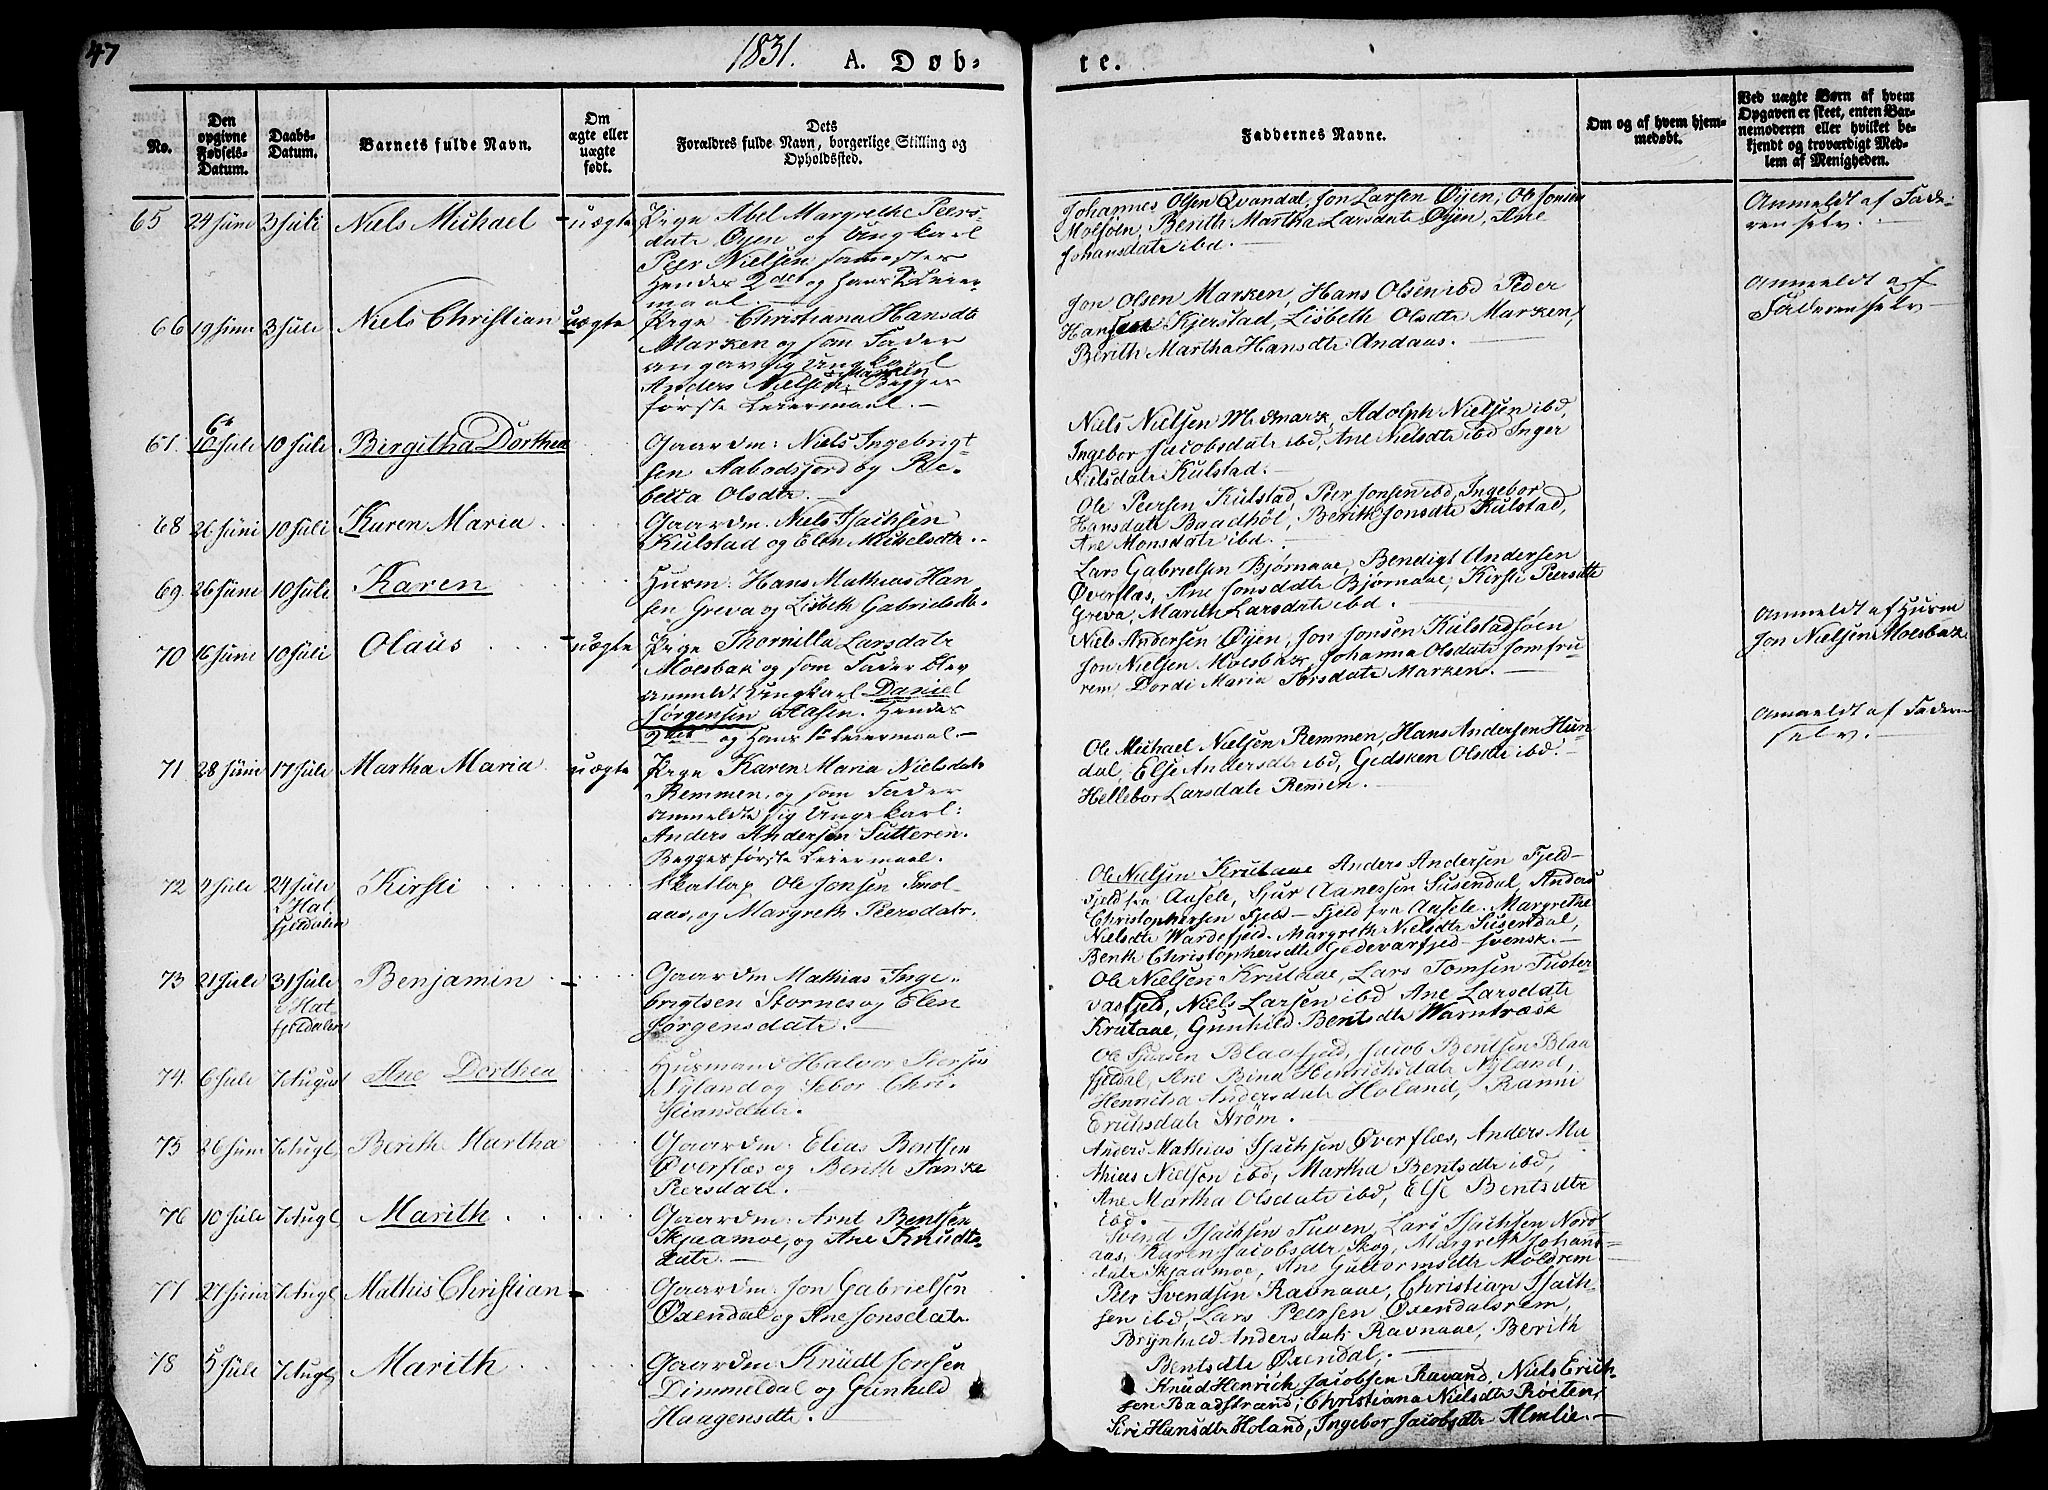 47
1831.
A. Døb-
te.
No.
Den opgivne Fødsels-Datum.
Daabs-Datum.
Barnets fulde Navn.
Om ægte eller uægte født.
Dets Forældres fulde Navn, borgerlige Stilling og Opholdsted.
Faddernes Navne.
Om og af hvem hjem-medøbt.
Ved uægte Børn af hvem Opgaven er skeet, enten Bar-nemoderen eller hvilket be-kjendt og troværdigt Med-lem af Menigheden.
65 24 Juni 3 Juli Niels Michael uægte
Pige Abel Margrethe Peers-
datr Øyen og Ungkarl
Peer Nielsen
Hendes 2det og hans Leier-
maal.
Johannes Olsen Qvandal, Jon Larsen Øyen,
Berith Martha Larsdatr Øyen, Ane
Johansdatr ibd.
Anmeldt af Fade-
ren selv.
66 19 Juni 3 Juli Niels Christian uægte
Pige Christiana Hansdtr
Marken og som Fader
angav sig Ungkarl
Anders Nielsen Marken Begges
første Leiermaal.
Jon Olsen Marken, Hans Olsen ibd Peder
Hansen Kjerstad, Lisbeth Olsdtr Marken,
Berith Martha Hansdtr Andaas.
Anmeldt af
Faderen selv
67. 6te 10 Juli 10 Juli Birgitha Dorthea
Gaardm: Niels Ingebrigt-
sen Aabodsjord og Re-
betta Olsdtr.
Niels Nielsen, Adolph Nielsen ibd,
Ingebor Jacobsdatr ibd, Ane Nielsdtr ibd Inger
Nielsdatr Kulstad.
68 26 Juni 10 Juli Karen Maria
Gaardm: Niels Isachsen
Kulstad og Elen Mikelsdtr.
Ole Peersen Kulstad, Peer Jonsen ibd, Ingebor
Hansdatr Baadhøl, Berith Jonsdtr Kulstad,
Ane Monsdatr ibd.
69. 26 Juni 10 Juli Karen
Husm: Hans Mathias Han
sen Greva og Lisbeth Gabrielsdtr.
Lars Gabrielsen Bjørnaae, Bendigt Andersen
Øverflæs, Ane Jonsdatr Bjørnaae, Kirsti Peersdtr
Greva, Marith Larsdatr ibd.
70 16 Juni 10 Juli Olaus uægte
Pige Thornilla Larsdatr
Moesbak og som Fader blev
anmeldt Ungkarl Daniel
Jørgensen Aasen. Hendes
2det og Hans 1te Leiermaal.
Niels Andersen Øyen, Jon Jonsen Kulstadsøen
Jon Nielsen Moesbak, Johanna Olsdatr Jomfru-
rem, Dordi Maria Torsdatr Marken.
Anmeldt af Husm
Jon Nielsen Moesbak
71 28 Juni 17 Juli Martha Maria uægte
Pige Karen Maria Nielsdatr
Remmen, og som Fader
anmeldte sig Ungekarl:
Anders Andersen Sutteren.
Begges første Leiermaal.
Ole Michael Nielsen Remmen, Hans Andersen Hun-
dal, Else Andersdtr ibd, Gidsken Olsdtr ibd.
Hellebor Larsdatr Remen.
Anmeldt af Faderen
selv.
72 2 Juli 24 Juli i Hat-fjeldalen Kirsti
Ole Jonsen
og Margreth Peersdatr.
Ole Nielsen Krutaae Anders Andersen Fjeld-
fjeld fra Aasele, Sjur Aanessen Susendal, Anders
Christophersen Fjeld-Fjeld fra Aasele. Margrethe
Nielsdtr Wardefjeld. Margreth Nielsdtr Susendal,
Benth Christophersdtr Gedevarfjeld-svensk.
73 21 Juli 31 Juli i Hat-fjeldalen Benjamin
Gaardm Mathias Inge-
brigtsen Stornes og Elen
Jørgensdatr.
Ole Nielsen Krutaae, Lars Tomsen Tuster-
vasfjeld, Niels Larsen ibd Ane Larsdatr
Krutaae, Gunhild Bentsdtr Warntræsk
74. 6 Juli 7 August Ane Dorthea
Husmand Halvor Peersen
Nyland og Chri-
stiansdatr.
Ole Sjursen Blaafjeld, Jacob Bentsen Blaa
fjeldal, Ane Bina Henrichsdatr Nyland,
Henricha Andersdatr Holand, Ranni
Erichsdatr Strøm.
75 26 Juni 7 Augt Berith Martha
Gaardm: Elias Bentsen
Øverflæs og Berith Tanke
Peersdatr.
Anders Mathias Isachsen Øverflæs, Anders Ma
thias Nielsen ibd, Martha Bentsdtr ibd,
Ane Martha Olsdatr ibd, Else Bentsdtr
ibd.
76 10 Juli 7 Augt Marith
Gaardm: Arnt Bentsen
Skjaamoe, og Ane Knudts-
datr.
Svend Isachsen Tuven, Lars Isachsen Nord
aas, Karen Jacobsdtr Skog, Margreth Johans-
datr Skjaamoe, Ane Guttormsdtr Moldrem
77 27 Juni 7 Augt Mathis Christian
Gaardm: Jon Gabrielsen
Øxendal og Ane Jonsdatr
Peer Svendsen Ravnaae, Christian Isach-
sen ibd, Lars Peersen Øxendalsrem,
Brynhild Andersdatr Ravnaae, Berith
Bentsdtr Øxendal.
78 5 Juli 7 Augt Marith
Gaardm: Knudt Jonsen
Dimmeldal og Gunhild
Haagensdtr.
Knud Henrich Jacobsen Ravand, Niels Erich-
sen Baadstrand, Christiana Nielsdtr Røiten,
Siri Hansdtr Holand, Ingebor Jacobsdtr Almlie.